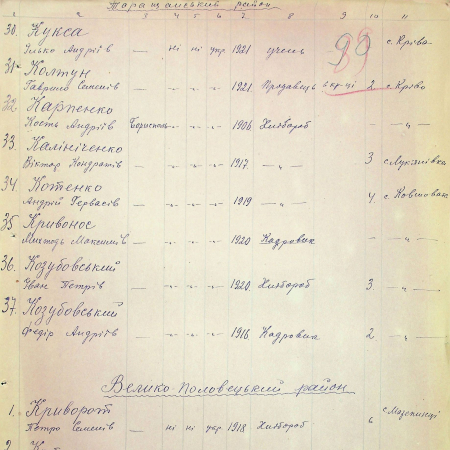 Таращанський район
1 2 3 4 5 6 7 8 9 10 11
30. Кукса
Ілько Андріїв — ні ні укр 1921 учень с. Крива
99
31. Колтун
Гаврило Семенів — „ „ „ 1921. Продавець в крамниці 2 с. Криво
32. Карпенко
Кость Андріїв „ „ „ 1906. Хлібороб — „
33. Калініченко
Віктор Кондратів — „ „ „ 1917. — „ — 3 с. Лук'янівка
34. Котенко
Андрій Гервасів — „ „ „ 1919 — „ — 4.
35 Кривонос
Максимів — „ „ „ 1920 Кадровик — „ —
36. Козубовський
Іван Петрів — „ „ „ 1920 Хлібороб 3. „
37. Козубовський
Федір Андріїв — „ „ „ 1916 Кадровик 2 „
Велико Половецький район
1. Криворот
Петро Семенів — ні ні укр 1918 Хлібороб 6 с. Мазепинці
2